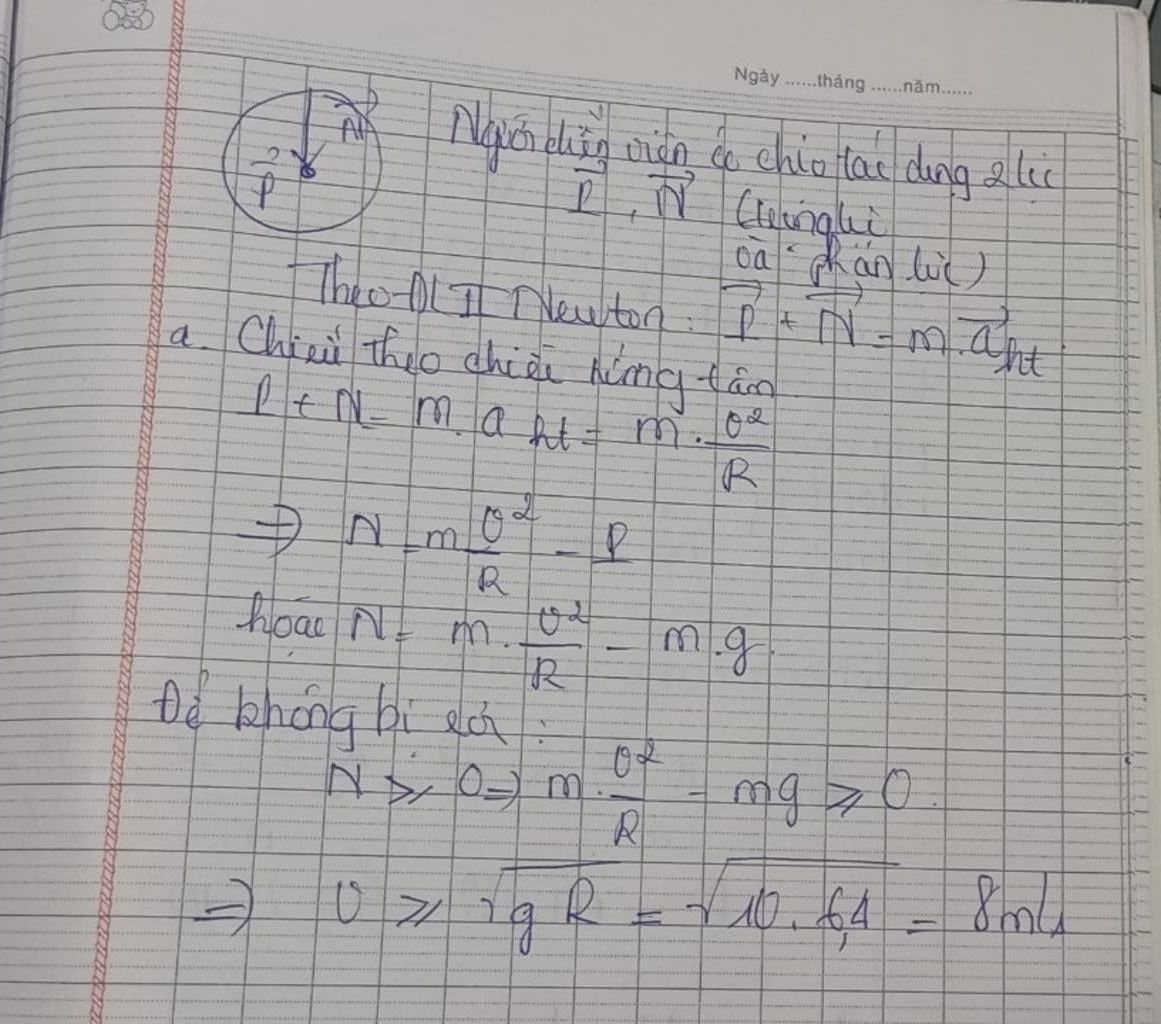 Ngày ......tháng ......năm......
N
P
Người diễn viên đi chịu tác dụng 2 lực
P, N (trọng lực
và phản lực)
Theo ĐL II Newton: P + N = m.a ht
a. Chiếu theo chiều hướng tâm
P + N = m.a ht = m.v²/R
⇒ N = m v²/R - P
hoặc N = m.v²/R - m.g
Để không bị rơi :
N ≥ 0 ⇒ m.v²/R - mg ≥ 0.
⇒ v ≥ √gR = √10.6,4 = 8m/s